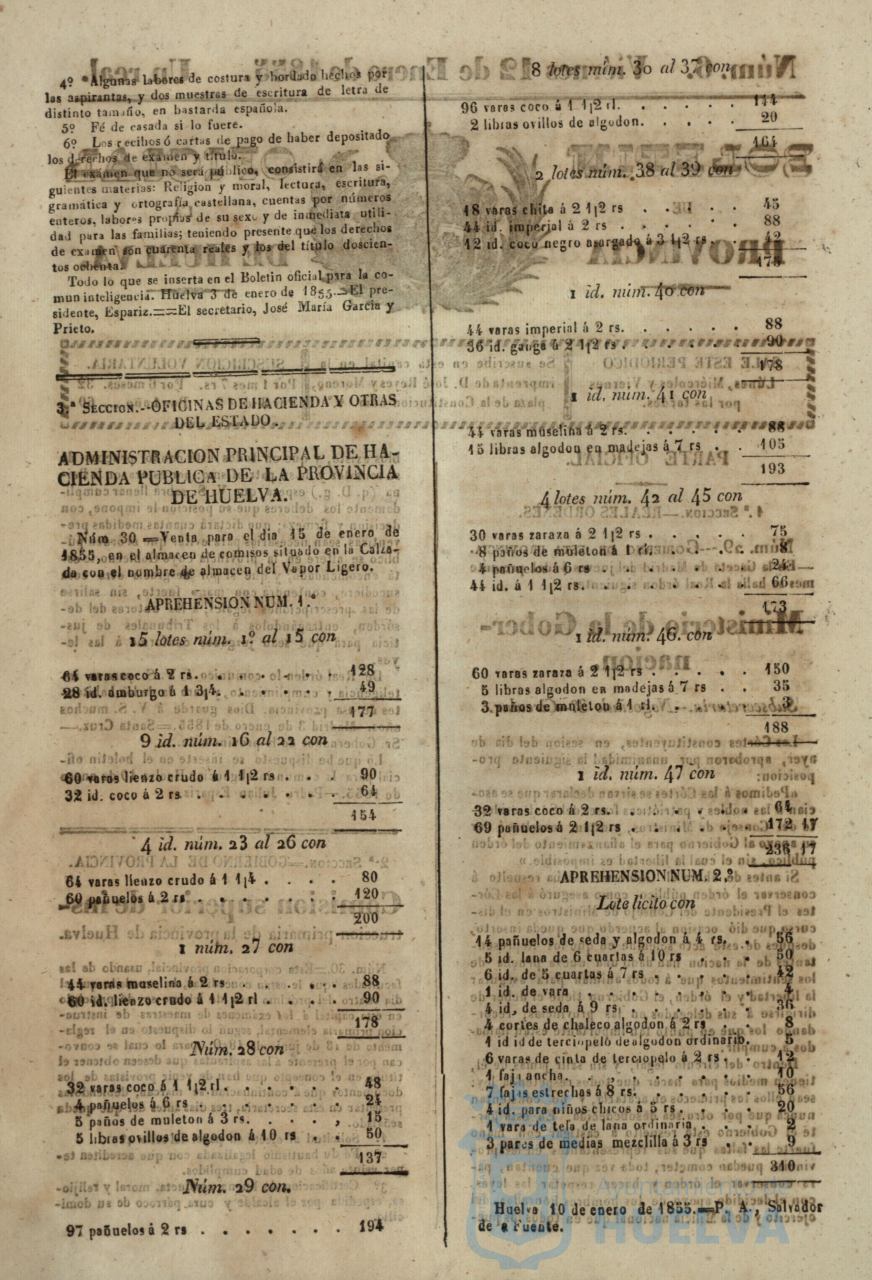 4º Algunas labores de costura y bordado hechos por
las aspirantas, y dos muestras de escritura de letra de
distinto tamaño, en bastarda española.
5º Fé de casada si lo fuere.
6º Los recibos ó cartas de pago de haber depositado
los derechos de exámen y título.
El exámen que no será público, consistirá en las si-
guientes materias: Religion y moral, lectura, escritura,
gramática y ortografía castellana, cuentas por números
enteros, labores propias de su sexo y de inmediata utili-
dad para las familias; teniendo presente que los derechos
de exámen son cuarenta reales y los del título doscien-
tos ochenta.
Todo lo que se inserta en el Boletin oficial para la co-
mun inteligencia. Huelva 3 de enero de 1855.=El pre-
sidente, Espariz.==El secretario, José María García y
Prieto.
3.ª SECCION.--OFICINAS DE HACIENDA Y OTRAS
DEL ESTADO.
ADMINISTRACION PRINCIPAL DE HA-
CIENDA PUBLICA DE LA PROVINCIA
DE HUELVA.
Núm 30 =Venta para el dia 15 de enero de
1855, en el almacen de comisos situado en la Calza-
da con el nombre de almacen del Vapor Ligero.
APREHENSION NUM. 1.ª
15 lotes núm. 1º al 15 con
64 varas coco á 2 rs. . . . . . . 128
28 id. amburgo á 1 3¡4. . . . . . 49
177
9 id. núm. 16 al 22 con
60 varas lienzo crudo á 1 1¡2 rs . . . 90
32 id. coco á 2 rs . . . . . . . 64
154
4 id. núm. 23 al 26 con
64 varas lienzo crudo á 1 1¡4 . . . . 80
60 pañuelos á 2 rs . . . . . . . 120
200
1 núm. 27 con
44 varas muselina á 2 rs . . . . . 88
60 id. lienzo crudo á 1 1¡2 rl . . . . 90
178
Núm. 28 con
32 varas coco á 1 1¡2 rl . . . . . 48
4 pañuelos á 6 rs . . . . . . . 24
5 paños de muleton á 3 rs. . . . . 15
5 libras ovillos de algodon á 10 rs . . 50
137
Núm. 29 con.
97 pañuelos á 2 rs . . . . . . . 194
8 lotes núm. 30 al 37 con
96 varas coco á 1 1¡2 rl. . . . . . 144
2 libras ovillos de algodon. . . . . 20
164
2 lotes núm. 38 al 39 con
18 varas chita á 2 1¡2 rs . . . . 45
44 id. imperial á 2 rs . . . . . 88
12 id. coco negro asargado á 3 1¡2 rs . . 42
175
1 id. núm. 40 con
44 varas imperial á 2 rs. . . . . . 88
36 id. ganga á 2 1¡2 rs . . . . . 90
178
1 id. num. 41 con
44 varas muselina á 2 rs. . . . . . 88
15 libras algodon en madejas á 7 rs . . 105
193
4 lotes núm. 42 al 45 con
30 varas zaraza á 2 1¡2 rs . . . . . 75
8 paños de muleton á 1 rl. . . . . 8
4 pañuelos á 6 rs . . . . . . 24
44 id. á 1 1¡2 rs. . . . . . . 66
173
1 id. núm. 46. con
60 varas zaraza á 2 1¡2 rs . . . . . 150
5 libras algodon en madejas á 7 rs . . 35
3 paños de muleton á 1 rl. . . . . 3
188
1 id. núm. 47 con
32 varas coco á 2 rs. . . . . . 64
69 pañuelos á 2 1¡2 rs . . . . . 172 17
236 17
APREHENSION NUM. 2.ª
Lote licito con
14 pañuelos de seda y algodon á 4 rs. . 56
5 id. lana de 6 cuartas á 10 rs . . . 50
6 id. de 5 cuartas á 7 rs . . . . . 42
1 id. de vara . . . . . . . . 4
4 id. de seda á 9 rs . . . . . . 36
4 cortes de chaleco algodon á 2 rs . . 8
1 id id de terciopelo de algodon ordinario. 5
6 varas de cinta de terciopelo á 2 rs . . 12
1 faja ancha. . . . . . . . . 10
7 fajas estrechas á 8 rs. . . . . . 56
4 id. para niños chicos á 5 rs . . . . 20
1 vara de tela de lana ordinaria . . . 2
3 pares de medias mezclilla á 3 rs . . 9
310
Huelva 10 de enero de 1855.=P. A., Salvador
de Fuente.
HUELVA